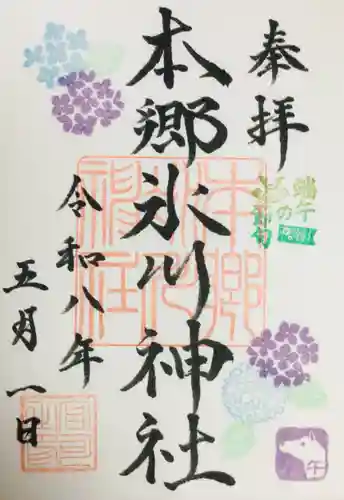 奉拝
端午
の
節句
本郷氷川神社
令和八年
五月一日
午